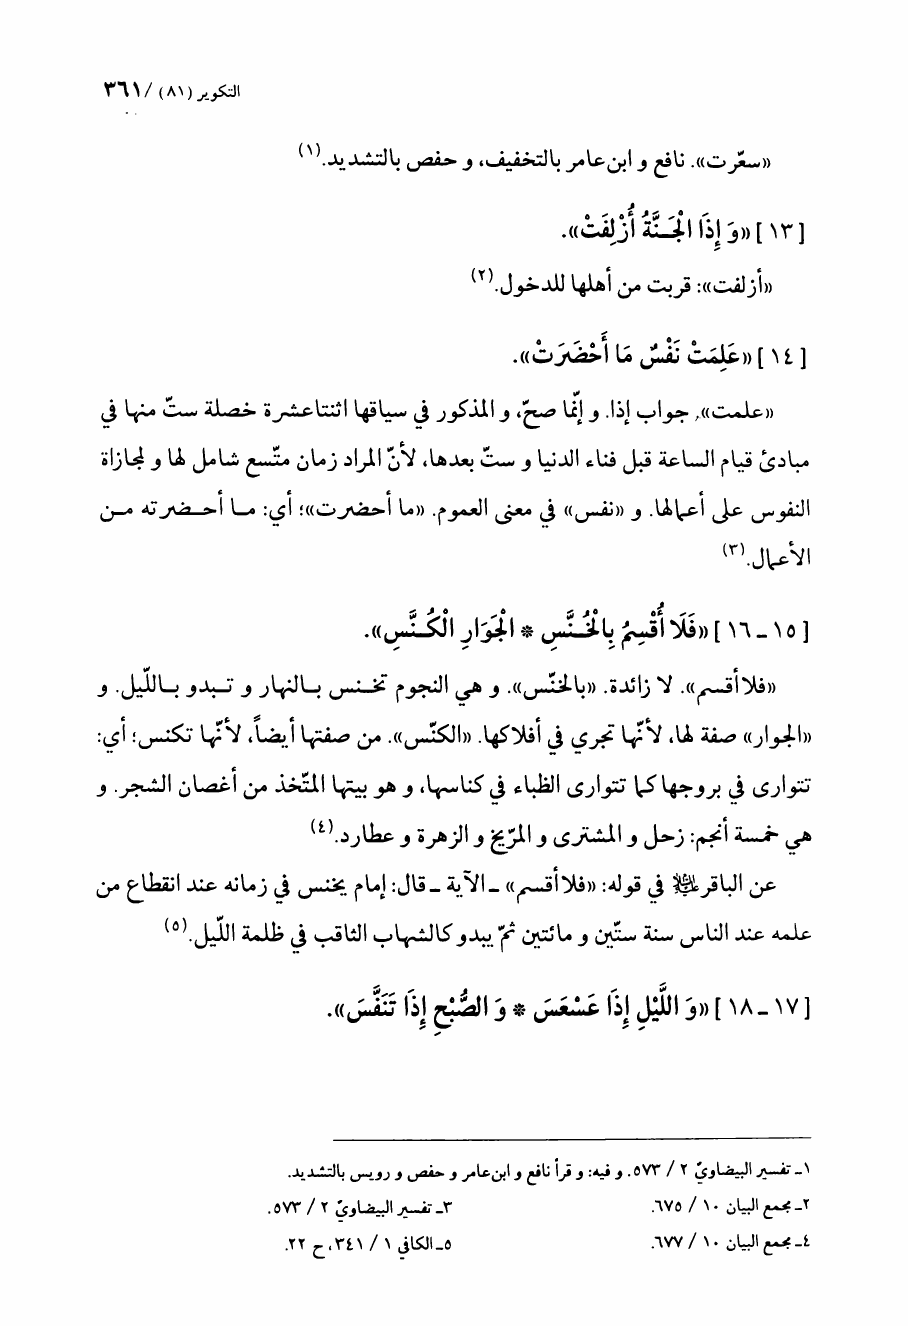 التكوير (٨١) / ٣٦١
«سعّرت». نافع و ابن‌عامر بالتخفيف، و حفص بالتشديد.(١)
[١٣] «وَ إِذَا الْجَـنَّةُ أُزْلِفَتْ».
«أزلفت»: قربت من أهلها للدخول.(٢)
[١٤] «عَلِمَتْ نَفْسٌ مَا أَحْضَرَتْ».
«علمت», جواب إذا. و إنّما صحّ، و المذكور في سياقها اثنتاعشرة خصلة ستّ منها في
مبادئ قيام الساعة قبل فناء الدنيا و ستّ بعدها، لأنّ المراد زمان متّسع شامل لها و لمجازاة
النفوس على أعمالها. و «نفس» في معنى العموم. «ما أحضرت»؛ أي: مـا أحـضرته مـن
الأعمال.(٣)
[١٥ ـ ١٦] «فَلَا أُقْسِمُ بِالْخُـنَّسِ * الْجَوَارِ الْكُـنَّسِ».
«فلا أقسم». لا زائدة. «بالخنّس». و هي النجوم تخـنس بـالنهار و تـبدو بـاللّيل. و
«الجوار» صفة لها، لأنّها تجري في أفلاكها. «الكنّس». من صفتها أيضاً، لأنّها تكنس؛ أي:
تتوارى في بروجها كما تتوارى الظباء في كناسها، و هو بيتها المتّخذ من أغصان الشجر. و
هي خمسة أنجم: زحل و المشترى و المرّيخ و الزهرة و عطارد.(٤)
عن الباقر عليه السلام في قوله: «فلا أقسم» ـ الآية ـ قال: إمام يخنس في زمانه عند انقطاع من
علمه عند الناس سنة ستّين و مائتين ثمّ يبدو كالشهاب الثاقب في ظلمة اللّيل.(٥)
[١٧ ـ ١٨] «وَ اللَّيْلِ إِذَا عَسْعَسَ * وَ الصُّبْحِ إِذَا تَنَفَّسَ».
١ـ تفسير البيضاويّ ٢ / ٥٧٣. و فيه: و قرأ نافع و ابن‌عامر و حفص و رويس بالتشديد.
٢ـ مجمع البيان ١٠ / ٦٧٥. ٣ـ تفسير البيضاويّ ٢ / ٥٧٣.
٤ـ مجمع البيان ١٠ / ٦٧٧. ٥ـ الكافي ١ / ٣٤١، ح ٢٢.